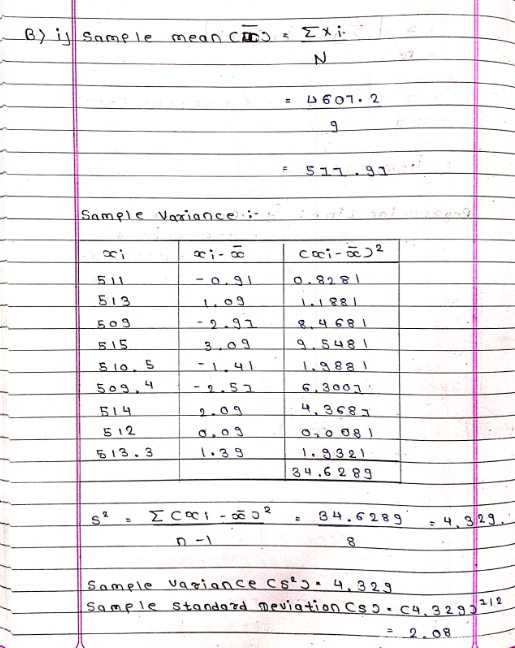 B) i) Sample mean (x̄) = Σxi
N
= 4607.2
9
= 511.91
Sample Variance :-
xi xi - x̄ (xi - x̄)²
511 -0.91 0.8281
513 1.09 1.1881
509 -2.91 8.4681
515 3.09 9.5481
510.5 -1.41 1.9881
509.4 -2.51 6.3001
514 2.09 4.3681
512 0.09 0.0081
513.3 1.39 1.9321
34.6289
S² = Σ(xi - x̄)² = 34.6289 = 4.329.
n-1 8
Sample variance (s²) = 4.329
Sample Standard Deviation (s) = (4.329)^1/2
= 2.08